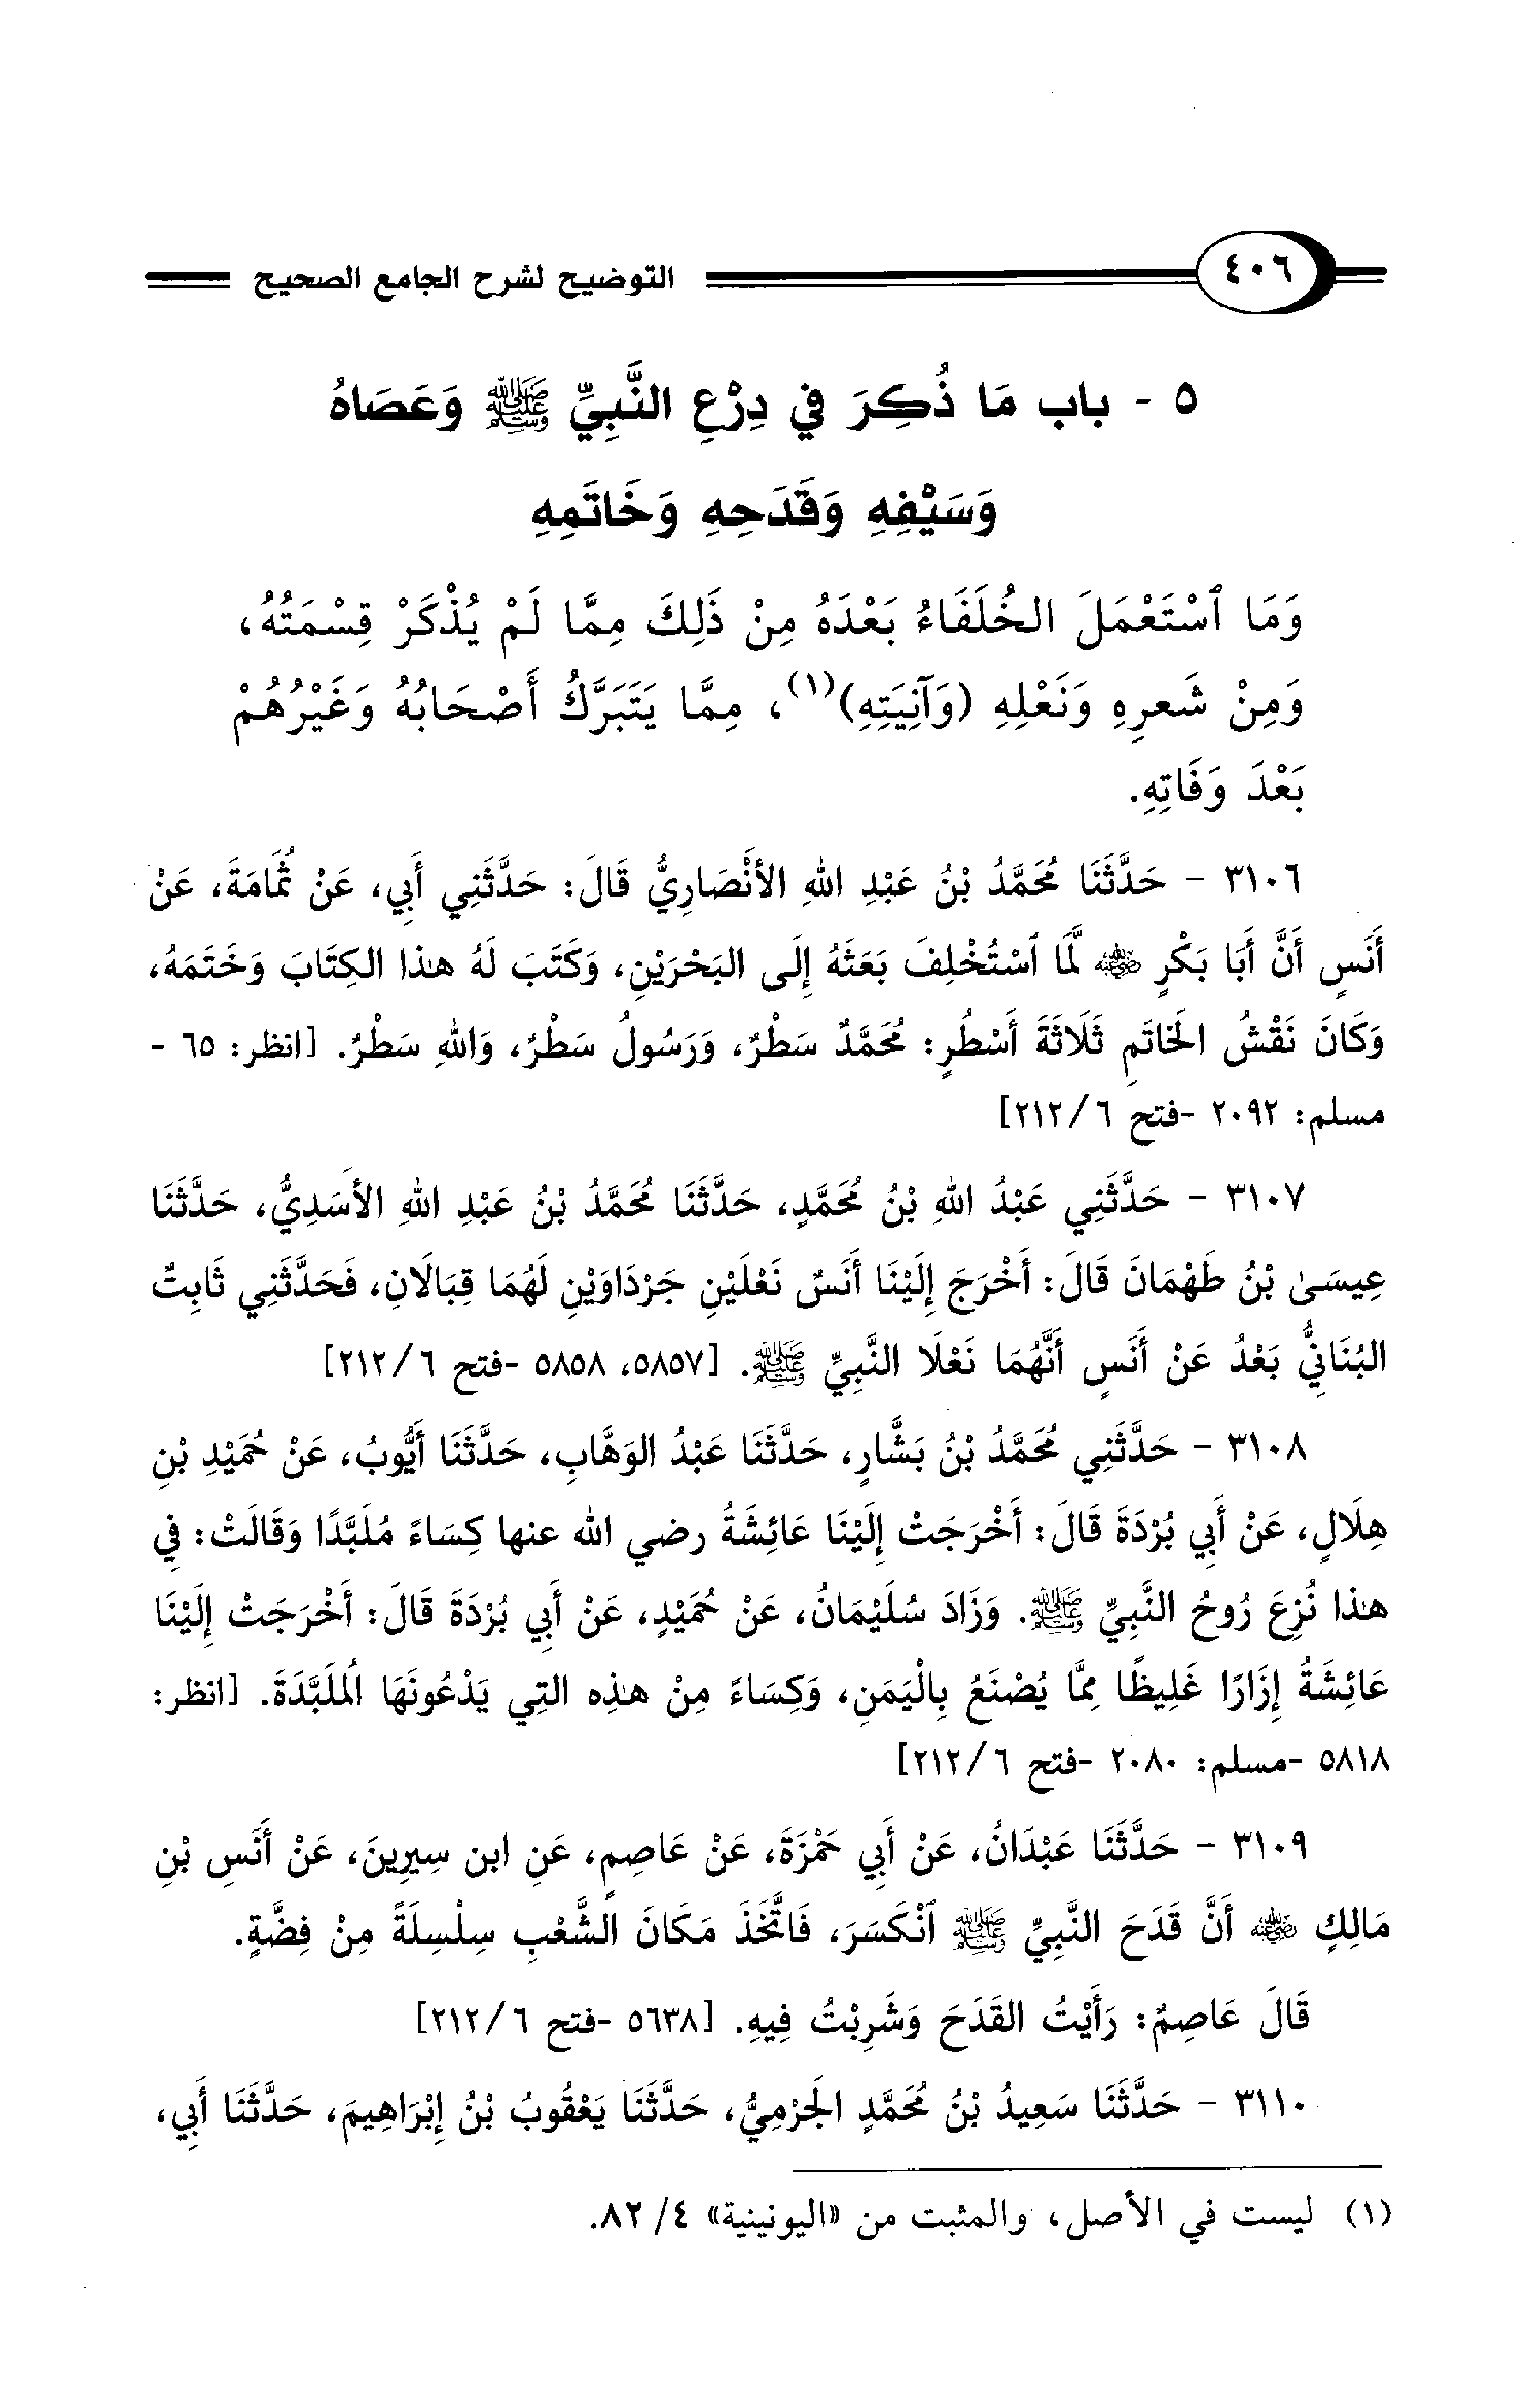 ٤٠٦ التوضيح لشرح الجامع الصحيح
٥ - باب مَا ذُكِرَ فِي دِرْعِ النَّبِيِّ ﷺ وَعَصَاهُ
وَسَيْفِهِ وَقَدَحِهِ وَخَاتَمِهِ
وَمَا ٱسْتَعْمَلَ الخُلَفَاءُ بَعْدَهُ مِنْ ذَلِكَ مِمَّا لَمْ يُذْكَرْ قِسْمَتُهُ،
وَمِنْ شَعرِهِ وَنَعْلِهِ (وَآنِيَتِهِ)(١)، مِمَّا يَتَبَرَّكُ أَصْحَابُهُ وَغَيْرُهُمْ
بَعْدَ وَفَاتِهِ.
٣١٠٦ - حَدَّثَنَا مُحَمَّدُ بْنُ عَبْدِ اللهِ الأَنْصَارِيُّ قَالَ: حَدَّثَنِي أَبِي، عَنْ ثُمَامَةَ، عَنْ
أَنَسٍ أَنَّ أَبَا بَكْرٍ ﵁ لَمَّا ٱسْتُخْلِفَ بَعَثَهُ إِلَى البَحْرَيْنِ، وَكَتَبَ لَهُ هذا الكِتَابَ وَخَتَمَهُ،
وَكَانَ نَقْشُ الخَاتَمِ ثَلَاثَةَ أَسْطُرٍ: مُحَمَّدٌ سَطْرٌ، وَرَسُولُ سَطْرٌ، وَاللهِ سَطْرٌ. [انظر: ٦٥ -
مسلم: ٢٠٩٢ -فتح ٦/ ٢١٢]
٣١٠٧ - حَدَّثَنِي عَبْدُ اللهِ بْنُ مُحَمَّدٍ، حَدَّثَنَا مُحَمَّدُ بْنُ عَبْدِ اللهِ الأَسَدِيُّ، حَدَّثَنَا
عِيسَىٰ بْنُ طَهْمَانَ قَالَ: أَخْرَجَ إِلَيْنَا أَنَسٌ نَعْلَيْنِ جَرْدَاوَيْنِ لَهُمَا قِبَالَانِ، فَحَدَّثَنِي ثَابِتٌ
البُنَانِيُّ بَعْدُ عَنْ أَنَسٍ أَنَّهُمَا نَعْلَا النَّبِيِّ ﷺ. [٥٨٥٧، ٥٨٥٨ -فتح ٦/ ٢١٢]
٣١٠٨ - حَدَّثَنِي مُحَمَّدُ بْنُ بَشَّارٍ، حَدَّثَنَا عَبْدُ الوَهَّابِ، حَدَّثَنَا أَيُّوبُ، عَنْ حُمَيْدِ بْنِ
هِلَالٍ، عَنْ أَبِي بُرْدَةَ قَالَ: أَخْرَجَتْ إِلَيْنَا عَائِشَةُ رضي الله عنها كِسَاءً مُلَبَّدًا وَقَالَتْ: فِي
هذا نُزِعَ رُوحُ النَّبِيِّ ﷺ. وَزَادَ سُلَيْمَانُ، عَنْ حُمَيْدٍ، عَنْ أَبِي بُرْدَةَ قَالَ: أَخْرَجَتْ إِلَيْنَا
عَائِشَةُ إِزَارًا غَلِيظًا مِمَّا يُصْنَعُ بِالْيَمَنِ، وَكِسَاءً مِنْ هذِه التِي يَدْعُونَهَا الُمَلَبَّدَةَ. [انظر:
٥٨١٨ -مسلم: ٢٠٨٠ -فتح ٦/ ٢١٢]
٣١٠٩ - حَدَّثَنَا عَبْدَانُ، عَنْ أَبِي حَمْزَةَ، عَنْ عَاصِمٍ، عَنِ ابن سِيرِينَ، عَنْ أَنَسِ بْنِ
مَالِكٍ ﵁ أَنَّ قَدَحَ النَّبِيِّ ﷺ ٱنْكَسَرَ، فَاتَّخَذَ مَكَانَ الشَّعْبِ سِلْسِلَةً مِنْ فِضَّةٍ.
قَالَ عَاصِمٌ: رَأَيْتُ القَدَحَ وَشَرِبْتُ فِيهِ. [٥٦٣٨ -فتح ٦/ ٢١٢]
٣١١٠ - حَدَّثَنَا سَعِيدُ بْنُ مُحَمَّدٍ الجَرْمِيُّ، حَدَّثَنَا يَعْقُوبُ بْنُ إِبْرَاهِيمَ، حَدَّثَنَا أَبِي،
(١) ليست في الأصل، والمثبت من «اليونينية» ٤/ ٨٢.